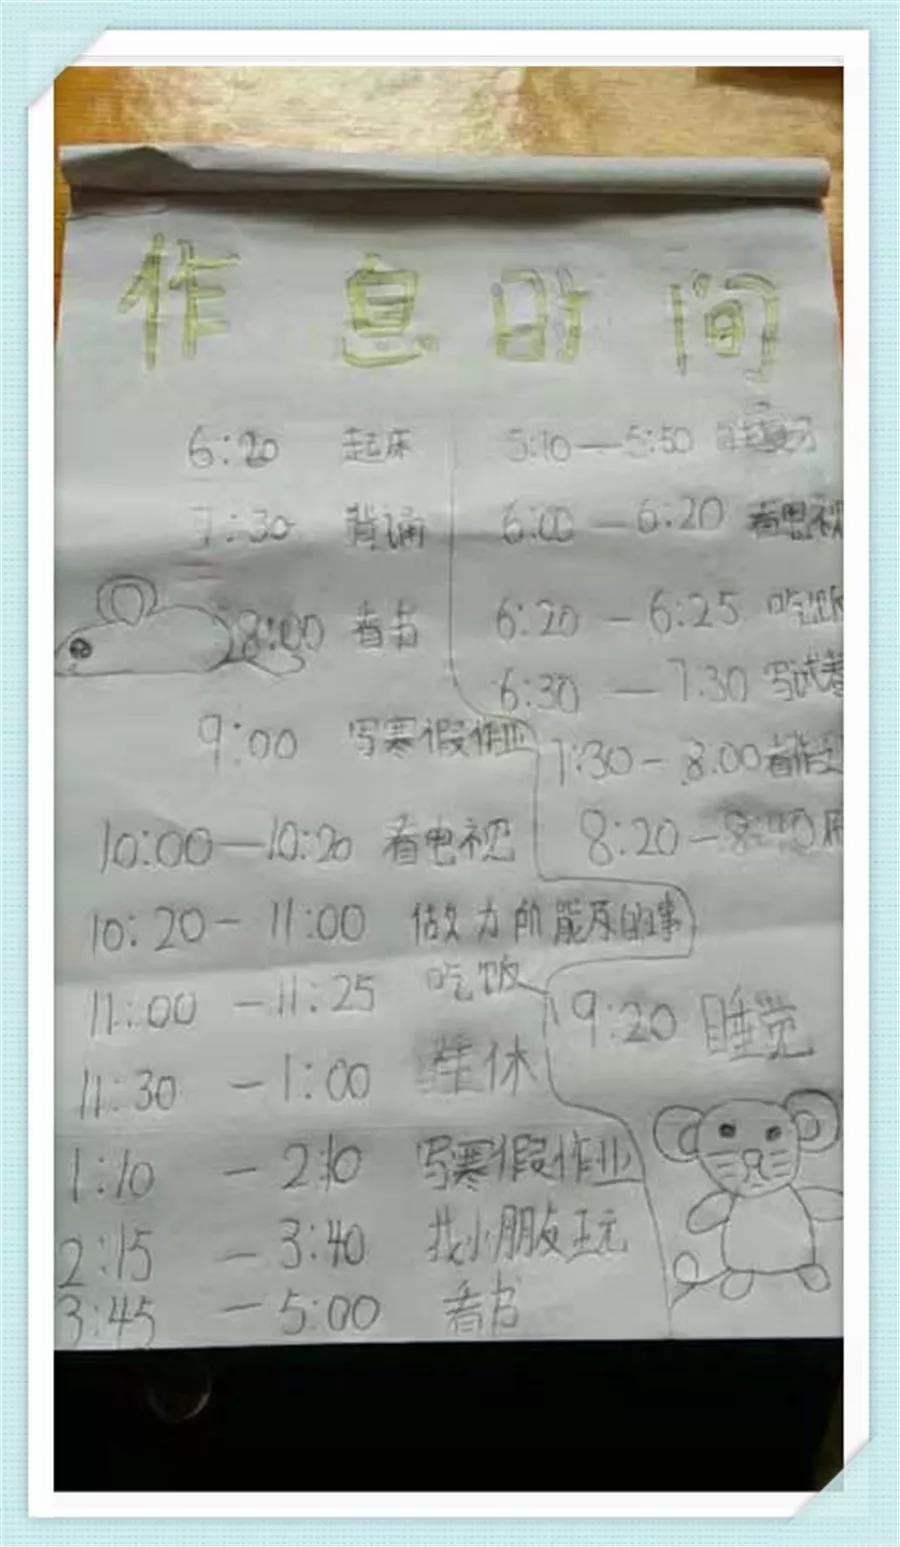 作息时间
6:20 起床
7:30 背诵
8:00 看书
9:00 写寒假作业
10:00—10:20 看电视
10:20— 11:00 做力所能及的事
11:00 —11:25 吃饭
11:30 —1:00 午休
1:10 — 2:10 写寒假作业
2:15 — 3:40 找小朋友玩
3:45 — 5:00 看书
5:10—5:50 复习
6:00 —6:20 看电视
6:20 — 6:25 吃饭
6:30 — 7:30 写试卷
7:30— 8:00 看
8:20—
9:20 睡觉